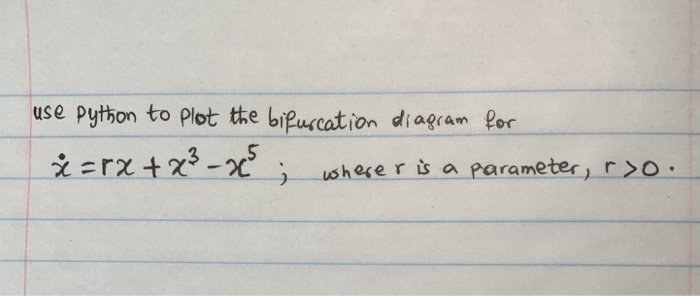 use python to plot the bifurcation diagram for
ẋ = rx + x³ - x⁵ ; where r is a parameter, r > 0.